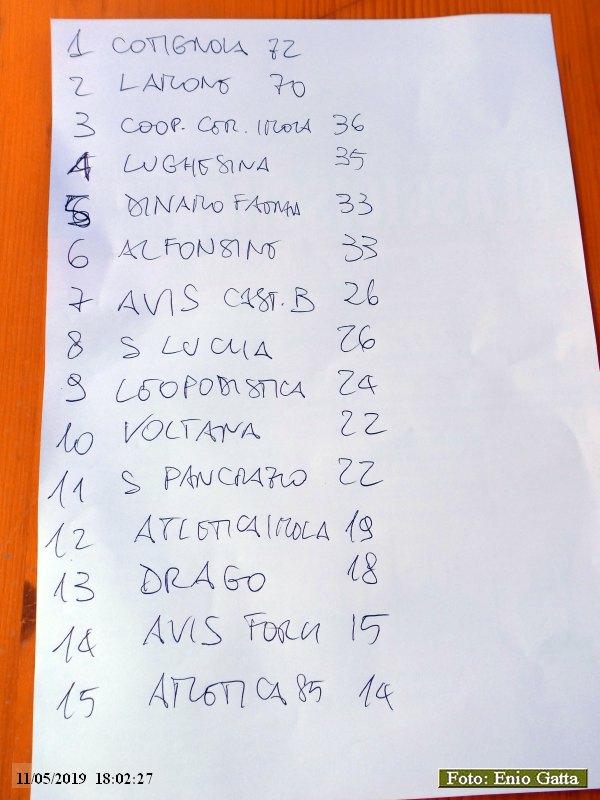 1 COTIGNOLA 72
2 LAMONE 70
3 COOP. CER. IMOLA 36
4 LUGHESINA 35
5 DINAMO FAENZA 33
6 ALFONSINE 33
7 AVIS CAST. B 26
8 S LUCIA 26
9 LEOPODISTICA 24
10 VOLTANA 22
11 S PANCRAZIO 22
12 ATLETICA IMOLA 19
13 DRAGO 18
14 AVIS FORLI 15
15 ATLETICA 85 14
11/05/2019 18:02:27
Foto: Enio Gatta